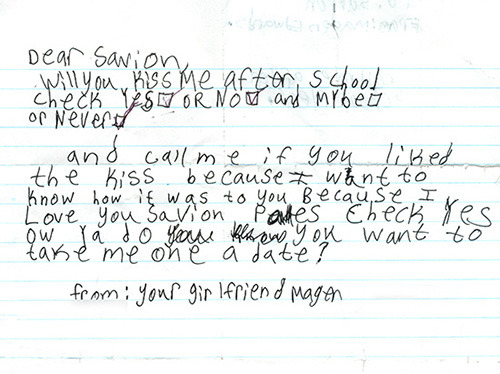 Dear Savion,
Will you kiss Me after school
check Yes☑ OR NO☑ and Mybe☐
or Never☑
and call me if you liked
the kiss because I want to
know how it was to you Because I
Love you Savion Check Yes
Ow ya do you want to
take me one a date?
from: your girlfriend Magen